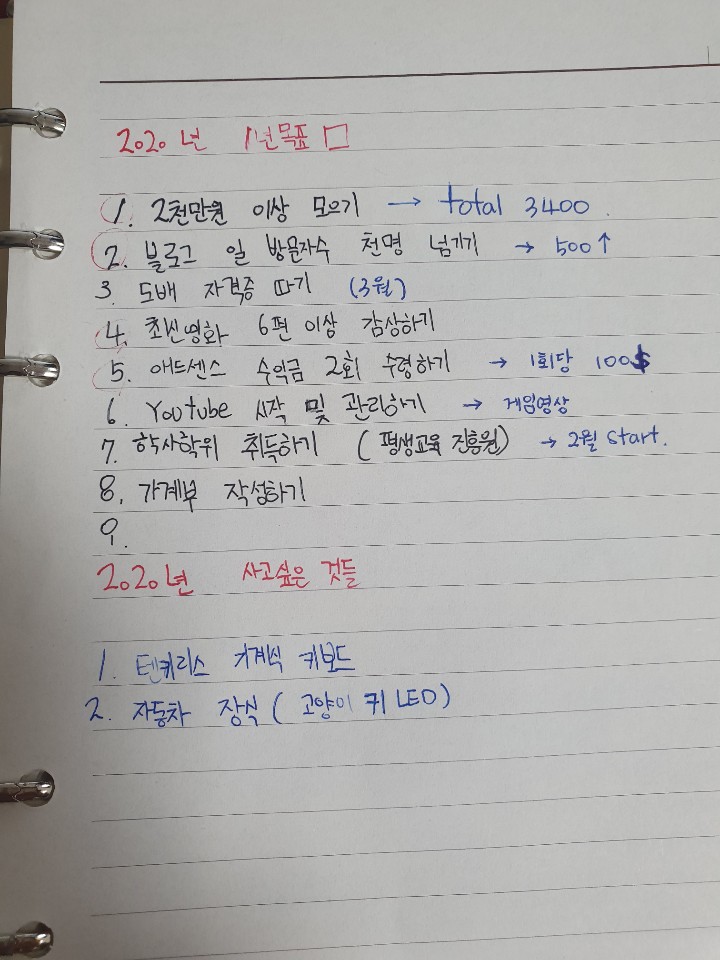 2020년 1년목표 □
1. 2천만원 이상 모으기 → total 3400.
2. 블로그 일 방문자수 천명 넘기기 → 500↑
3. 도배 자격증 따기 (3월)
4. 최신영화 6편 이상 감상하기
5. 애드센스 수익금 2회 수령하기 → 1회당 100$
6. Youtube 시작 및 관리하기 → 게임영상
7. 학사학위 취득하기 (평생교육 진흥원) → 2월 start.
8. 가계부 작성하기
9.
2020년 사고싶은 것들
1. 텐키리스 기계식 키보드
2. 자동차 장식 (고양이 귀 LED)